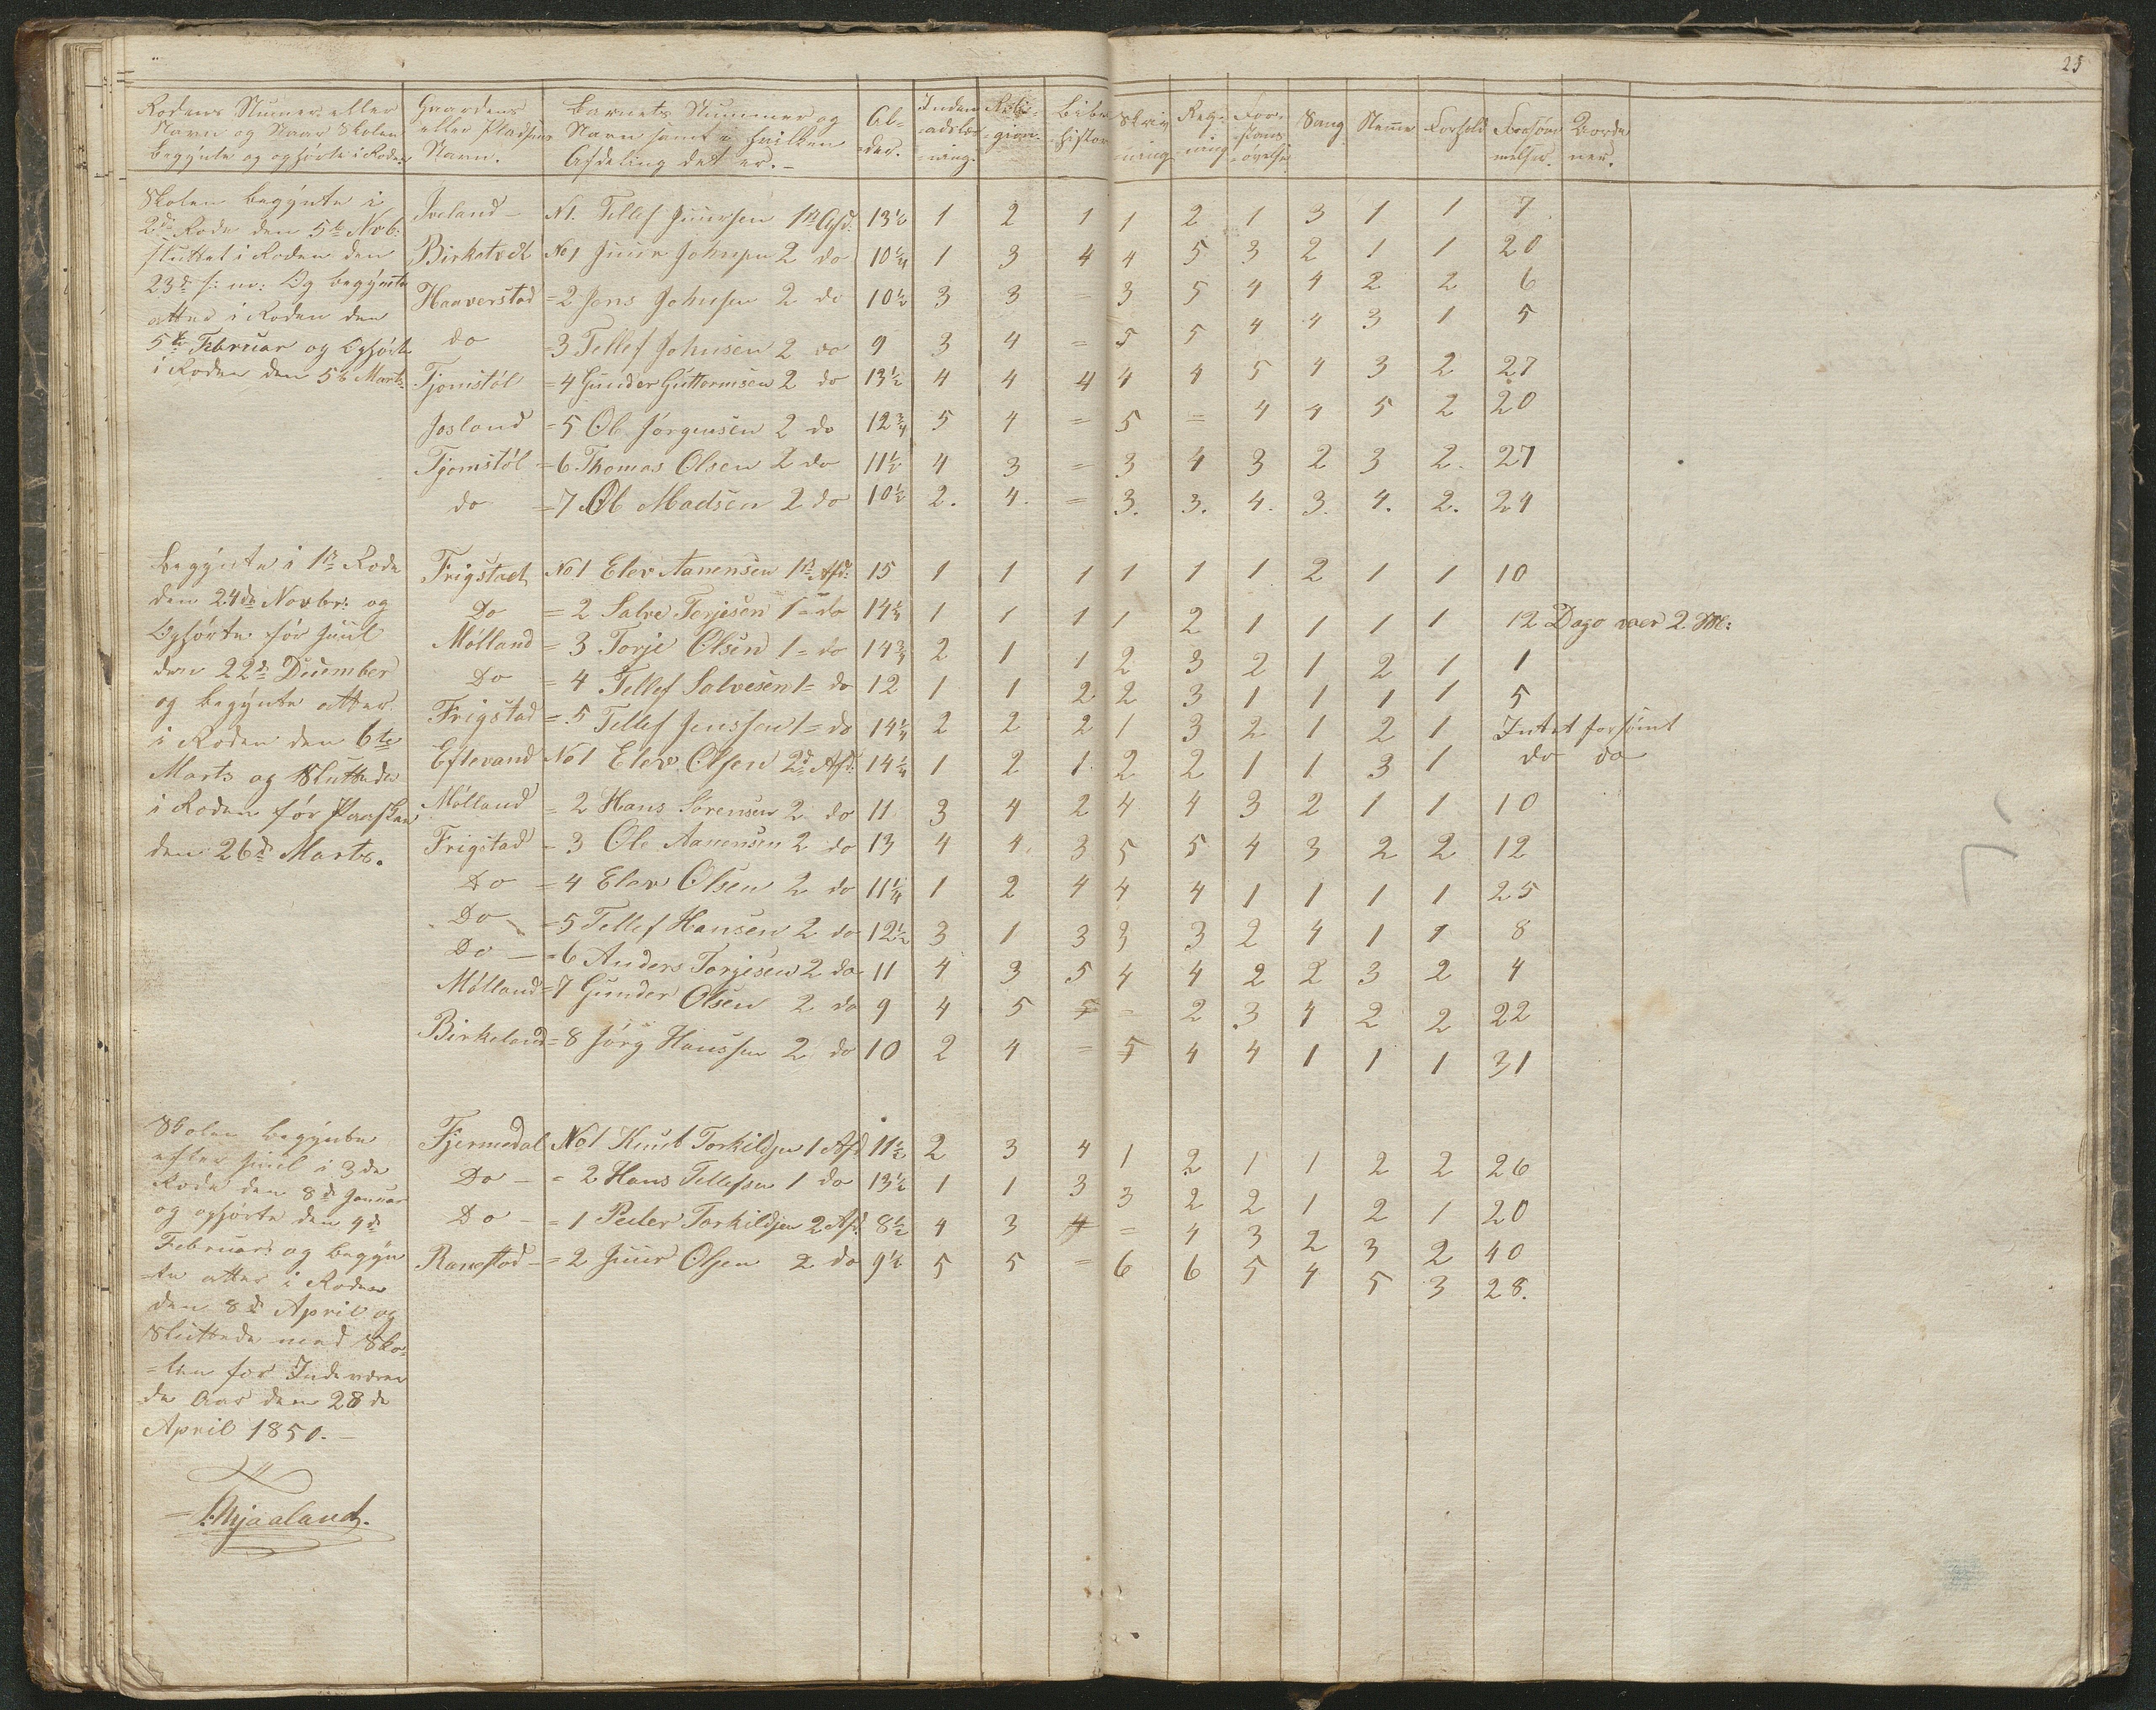 25
Rodens Numer eller Navn og Naar Skolen begyndte og ophørte i Roden | Gaardens eller Pladsens Navn. | Barnets Nummer og Navn samt i hvilken Afdeling det er. - | Al-der. | Inden-adslæs-ning. | Reli-gion. | Bibel-histor | Skriv-ning | Reg-ning | For-stands-øvelse | Sang | Nemme | Forhold | Forsøm-melser. |
Skolen begyndte i
2de Rode den 5te Novb:
sluttet i Roden den
23de s: m: Og begyndte
atter i Roden den
5te Februar og Ophørte
i Roden den 5te Marts.
Iveland - N1. Tellef Juursen 1ste Afd: 13½ 1 2 1 1 2 1 3 1 1 7
Birketvedt No1 Juur Johnsen 2 do 10¼ 1 3 4 4 5 3 2 1 1 20
Haaverstad = 2 Jens Johnsen 2 do 10½ 3 3 = 3 5 4 4 2 2 6
do = 3 Tellef Johnsen 2 do 9 3 4 = 5 5 4 4 3 1 5
Tjomstøl = 4 Gunder Guttormsen 2 do 13½ 4 4 4 4 4 5 4 3 2 27
Josland = 5 Ole Jørgensen 2 do 12¾ 5 4 = 5 = 4 4 5 2 20
Tjomstøl = 6 Thomas Olsen 2 do 11½ 4 3 = 3 4 3 2 3 2. 27
do = 7 Ole Madsen 2 do 10½ 2. 4. = 3. 3. 4. 3. 4. 2. 24
Begyndte i 1ste Rode
den 24de Novbr: og
Ophørte før Juul
den 22de December
og begyndte atter
i Roden den 6te
Marts og Sluttede
i Roden før Paasken
den 26de Marts.
Frigstad No1 Elev Aanensen 1ste Afd: 15 1 1 1 1 1 1 2 1 1 10
Do = 2 Salve Torjesen 1 = do 14¼ 1 1 1 1 2 1 1 1 1 12 Dage over 2 M:
Mølland = 3 Torje Olsen 1 = do 14¾ 2 1 1 2 3 2 1 2 1 1
Do = 4 Tellef Salvesen 1 = do 12 1 1 2 2 3 1 1 1 1 5
Frigstad = 5 Tellef Jenssen 1 = do 14¼ 2 2 2 1 3 2 1 2 1 Intet forsømt
Eftevand No1 Elev Olsen 2de Afd: 14¼ 1 2 1 2 2 1 1 3 1 do do
Mølland = 2 Hans Sørensen 2 do 11 3 4 2 4 4 3 2 1 1 10
Frigstad = 3 Ole Aanensen 2 do 13 4 4. 3 5 5 4 3 2 2 12
Do = 4 Elev Olsen 2 do 11¼ 1 2 4 4 4 1 1 1 1 25
Do = 5 Tellef Hansen 2 do 12½ 3 1 3 3 3 2 4 1 1 8
Do - = 6 Anders Torjesen 2 do 11 4 3 5 4 4 2 2 3 2 4
Mølland = 7 Gunder Olsen 2 do 9 4 5 = = 2 3 4 2 2 22
Birkeland = 8 Jørg Hanssen 2 do 10 2 4 = 5 4 4 1 1 1 31
Skolen begyndte
efter Juul i 3de
Rode den 8de Januar
og ophørte den 4de
Februar: og begyn
-te atter i Roden
den 8de April og
Sluttede med Sko-
=len for Indeværen
de Aar den 28de
April 1850. -
Fjermedal No1 Knut Torkildsen 1 Afd 11½ 2 3 4 1 2 1 1 2 2 26
Do - = 2 Hans Tellefsen 1 do 13½ 1 1 3 3 2 2 1 2 1 20
Do - = 1 Peder Torkildsen 2 Afd: 8½ 4 3 = = 4 3 2 3 2 40
Ranestad - = 2 Juur Olsen 2 do 9½ 5 5 = 6 6 5 4 5 3 28.
Mjaaland.